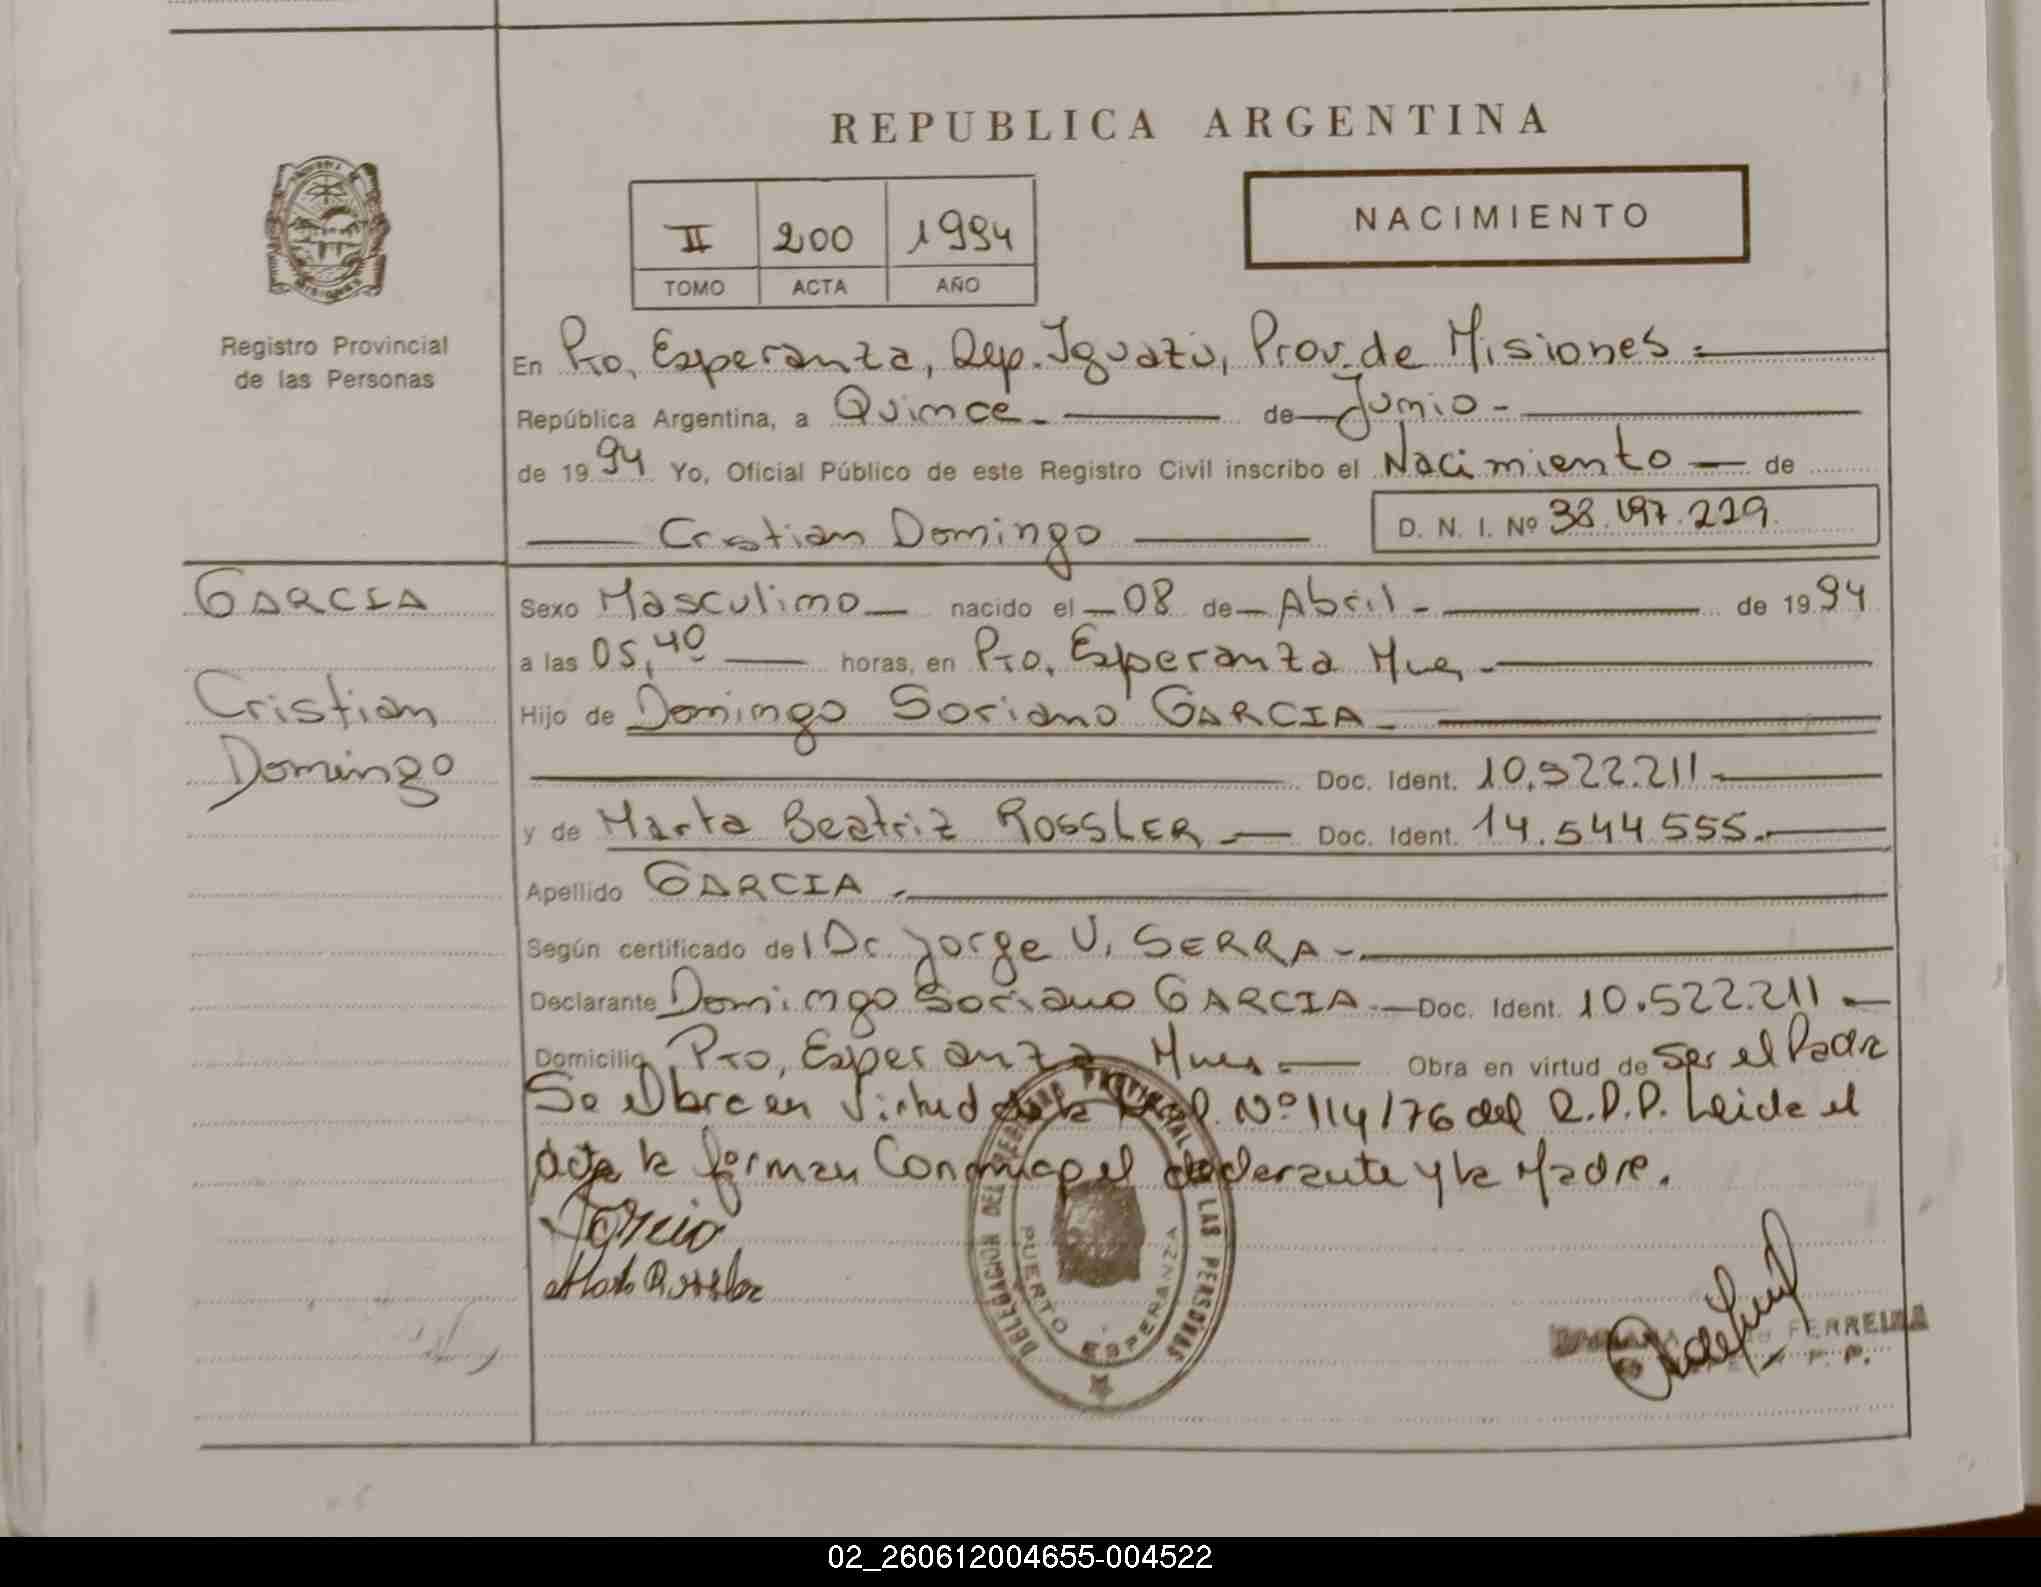 REPUBLICA ARGENTINA
NACIMIENTO
II 200 1994
TOMO ACTA AÑO
Registro Provincial
de las Personas
En Pto. Esperanza, Dep. Iguazú, Prov. de Misiones
República Argentina, a Quince de Junio
de 1994 Yo, Oficial Público de este Registro Civil inscribo el Nacimiento de
Cristian Domingo D. N. I. Nº 38.197.229
GARCIA
Cristian
Domingo
Sexo Masculino nacido el 08 de Abril de 1994
a las 05,40 horas, en Pto. Esperanza Mnes
Hijo de Domingo Soriano GARCIA
Doc. Ident. 10.522.211
y de Marta Beatriz ROSSLER Doc. Ident. 14.544.555
Apellido GARCIA
Según certificado del Dr. Jorge V. SERRA
Declarante Domingo Soriano GARCIA Doc. Ident. 10.522.211
Domicilio Pto. Esperanza Mnes Obra en virtud de Ser el Padre
Se labra en virtud de la Nº 114/76 del R.P.P. Leída el
acta la firman Conmigo el declarante y la Madre.
Garcia
Marta Rossler
DELEGACION DEL REGISTRO PROVINCIAL DE LAS PERSONAS
PUERTO ESPERANZA
FERREIRA
02_260612004655-004522